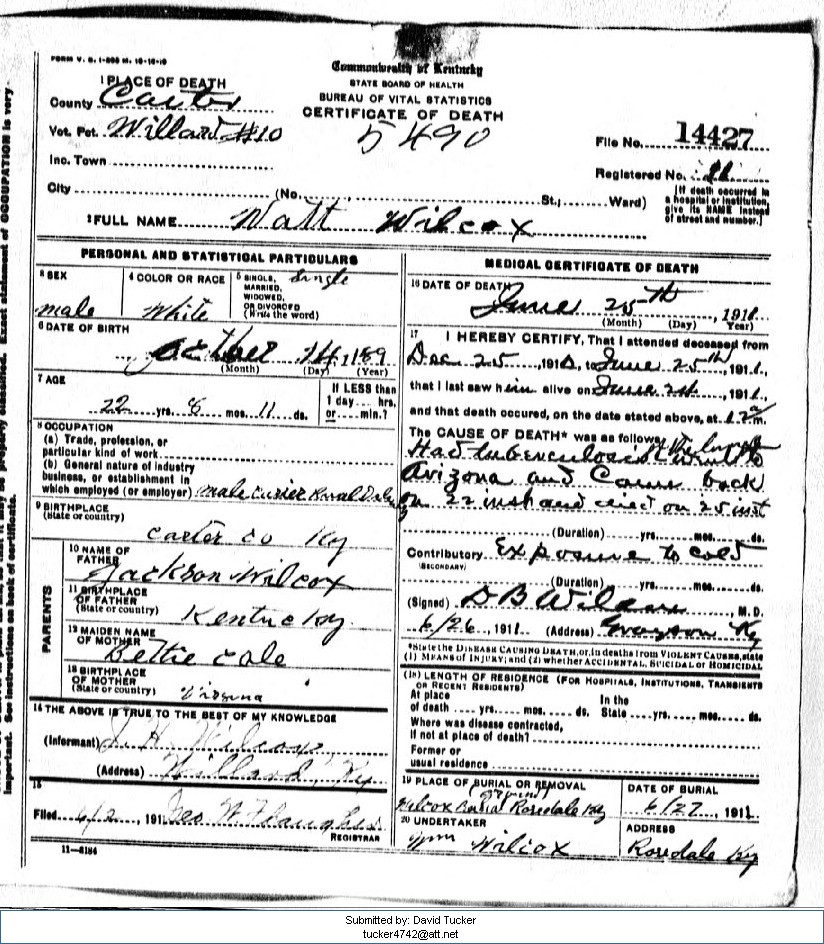 FORM V. S. 1-
Commonwealth of Kentucky
STATE BOARD OF HEALTH
BUREAU OF VITAL STATISTICS
CERTIFICATE OF DEATH
5490
1 PLACE OF DEATH
County Carter
Vot. Pct. Willard #10
Inc. Town
City (No. St.; Ward)
File No. 14427
Registered No. 11
[If death occurred in a hospital or institution, give its NAME instead of street and number.]
2 FULL NAME Watt Wilcox
PERSONAL AND STATISTICAL PARTICULARS
3 SEX
male
4 COLOR OR RACE
White
5 SINGLE, MARRIED, WIDOWED, OR DIVORCED (Write the word)
Single
6 DATE OF BIRTH
14, 189
(Month) (Day) (Year)
7 AGE
22 yrs. 8 mos. 11 ds.
If LESS than 1 day hrs. or min.?
8 OCCUPATION
(a) Trade, profession, or particular kind of work
(b) General nature of industry business, or establishment in which employed (or employer) male carier Rural
9 BIRTHPLACE
(State or country)
Carter Co Ky
PARENTS
10 NAME OF FATHER
Jackson Wilcox
11 BIRTHPLACE OF FATHER
(State or country)
Kentucky
12 MAIDEN NAME OF MOTHER
Bettie Cale
13 BIRTHPLACE OF MOTHER
(State or country)
Virginia
14 THE ABOVE IS TRUE TO THE BEST OF MY KNOWLEDGE
(Informant) J. H. Wilcox
(Address) Willard, Ky
15
Filed 6/2, 191 Geo W
REGISTRAR
11-5184
MEDICAL CERTIFICATE OF DEATH
16 DATE OF DEATH
June 25th, 1911
(Month) (Day) (Year)
17 I HEREBY CERTIFY, That I attended deceased from
Dec 25, 1910, to June 25th, 1911,
that I last saw him alive on June 24, 1911,
and that death occured, on the date stated above, at 12 a m.
The CAUSE OF DEATH* was as follows:
Had tuberculosis of the lungs went to
Arizona and Came back
on 22 inst and died on 25 inst
(Duration) yrs. mos. ds.
Contributory Exposure to cold
(SECONDARY)
(Duration) yrs. mos. ds.
(Signed) D B Wilcox, M. D.
6/26, 1911 (Address) Grayson Ky
*State the DISEASE CAUSING DEATH, or, in deaths from VIOLENT CAUSES, state
(1) MEANS OF INJURY; and (2) whether ACCIDENTAL, SUICIDAL or HOMICIDAL
(18) LENGTH OF RESIDENCE (FOR HOSPITALS, INSTITUTIONS, TRANSIENTS
OR RECENT RESIDENTS)
At place of death yrs. mos. ds. In the State yrs. mos. ds.
Where was disease contracted,
if not at place of death?
Former or
usual residence
19 PLACE OF BURIAL OR REMOVAL
Wilcox Burial ground Rosedale Ky
DATE OF BURIAL
6/27, 1911
20 UNDERTAKER
Wm Wilcox
ADDRESS
Rosedale Ky
important. See instructions on back of certificates.
be properly classified. Exact statement of OCCUPATION is very
Submitted by: David Tucker
tucker4742@att.net